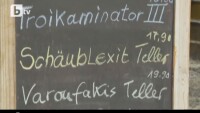 btv
Troikaminator III
17,90
SchäubLexit Teller
19.90
Varoufakis Teller